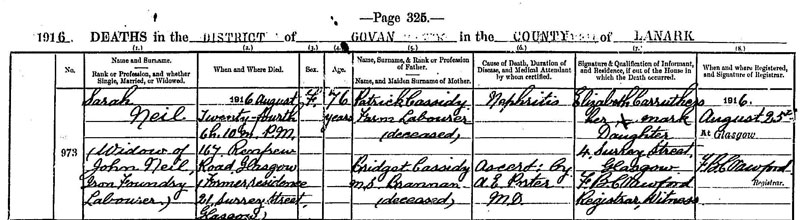 —Page 325.—
1916. DEATHS in the DISTRICT of GOVAN in the COUNTY of LANARK
(1.) (2.) (3.) (4.) (5.) (6.) (7.) (8.)
No.
Name and Surname.
Rank or Profession, and whether
Single, Married, or Widowed.
When and Where Died.
Sex.
Age.
Name, Surname, & Rank or Profession
of Father.
Name, and Maiden Surname of Mother.
Cause of Death, Duration of
Disease, and Medical Attendant
by whom certified.
Signature & Qualification of Informant,
and Residence, if out of the House in
which the Death occurred.
When and where Registered,
and Signature of Registrar.
973
Sarah
Neil
(Widow of
John Neil,
Iron Foundry
Labourer)
1916 August
Twenty-fourth
6h. 10m. P.M.
167, Renfrew
Road, Glasgow
(Former residence
21, Surrey Street,
Glasgow)
F.
76
years
Patrick Cassidy
Farm Labourer
(deceased)
Bridget Cassidy
M.S. Brannan
(deceased)
Nephritis
As cert: by
A. E. Porter
M.D.
Elizabeth Carruthers
her X mark
Daughter
4, Surrey Street,
Glasgow
F. B. Crawford
Registrar, Witness
1916.
August 25th
At Glasgow.
F. B. Crawford
Registrar.